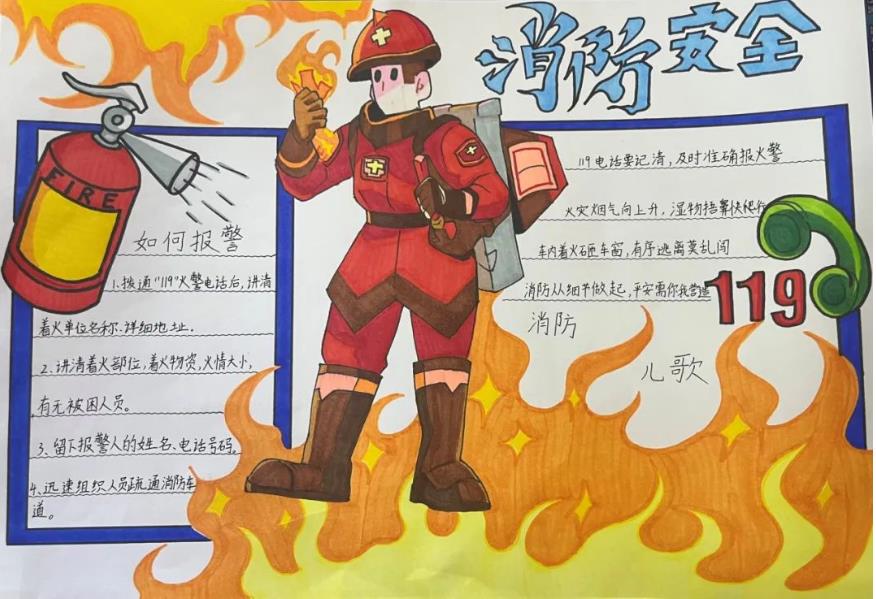 消防安全
FIRE
如何报警
1.拨通"119"火警电话后,讲清
着火单位名称、详细地址.
2、讲清着火部位,着火物资,火情大小,
有无被困人员。
3、留下报警人的姓名、电话号码。
4、迅速组织人员疏通消防车
道。
119电话要记清,及时准确报火警
火灾烟气向上升,湿物捂鼻快爬行
车内着火砸车窗,有序逃离莫乱闯
消防从细节做起,平安需你我营造
119
消防
儿歌